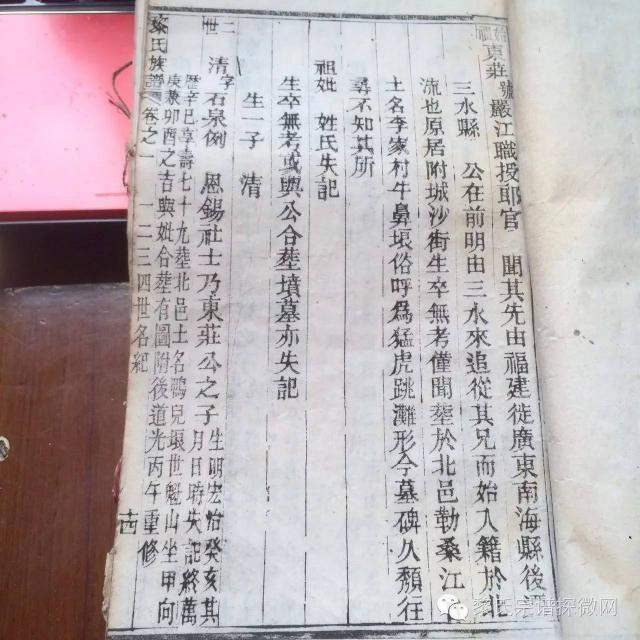 東莊 號嚴江職授耶官 聞其先由福建徙廣東南海縣後
三水縣 公在前明由三水來追從其兄而始入籍於北
流也原居附城沙街生卒無考僅聞塟於北邑勒桑江
土名李家村牛鼻垠俗呼為猛虎跳灘形今墓碑久頹往
尋不知其所
祖妣 姓氏失記
生卒無考或與公合塟墳墓亦失記
生一子 清
二世 清 字石泉例 恩錫社士乃東莊公之子 生明宏治癸亥其月日時失記終萬
歷辛巳享壽七十九塟北邑土名鴨兒垠世魁山坐甲向
庚兼卯酉之吉與妣合塟有圖附後道光丙午重修
黎氏族譜 卷之一 一二三四世名紀
黎氏宗谱探微网